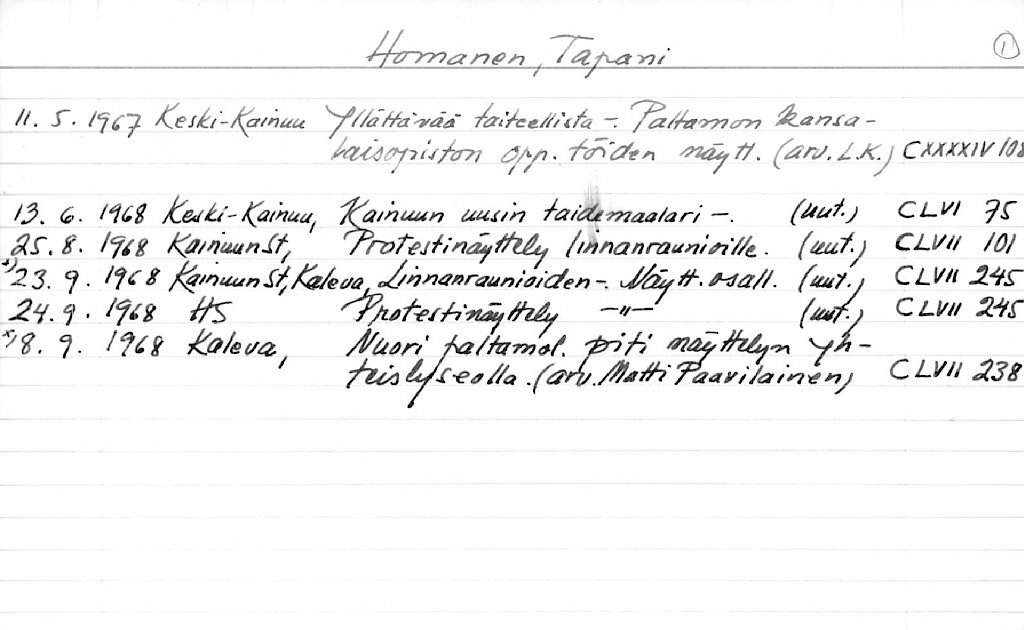 Homanen, Tapani 1
11. 5. 1967 Keski-Kainuu Yllättävää taiteellista -. Paltamon kansa-
laisopiston opp. töiden näytt. (arv. L.K.) CXXXXIV 108
13. 6. 1968 Keski-Kainuu, Kainuun uusin taidemaalari -. (uut.) CLVI 75
25. 8. 1968 KainuunSt, Protestinäyttely linnanraunioille. (uut.) CLVII 101
x) 23. 9. 1968 KainuunSt, Kaleva, Linnanraunioiden -. Näytt. osall. (uut.) CLVII 245
24. 9. 1968 HS Protestinäyttely -"- (uut.) CLVII 245
x) 8. 9. 1968 Kaleva, Nuori paltamol. piti näyttelyn yh-
teislyseolla. (arv. Matti Paavilainen) CLVII 238